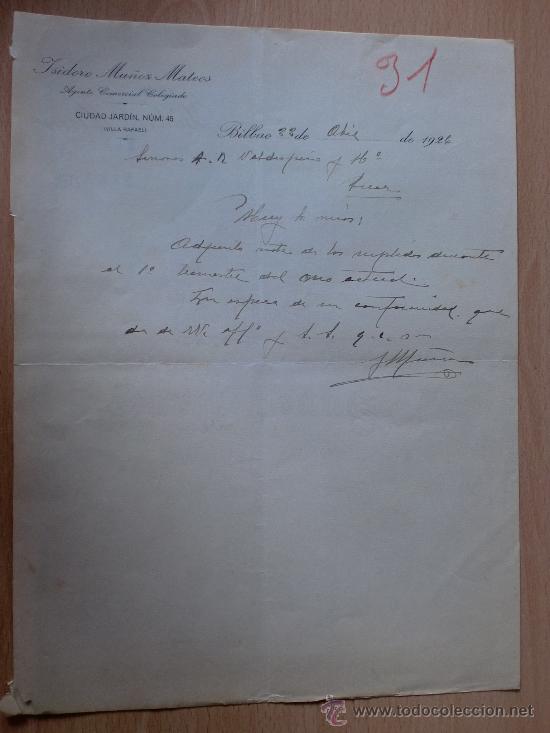 Isidoro Muñoz Mateos
91
Agente Comercial Colegiado
CIUDAD JARDÍN, NÚM. 45
(VILLA RAFAEL)
Bilbao 22 de Abril de 1926
Señores A. R. Valdespino y Hº
Jerez
Muy Sr míos;
Adjunto nota de los suplidos durante
el 1º trimestre del año actual.
En espera de su conformidad, que
da de Vds aff º y S. S. q. e. s. m.
I Muñoz
www.todocoleccion.net